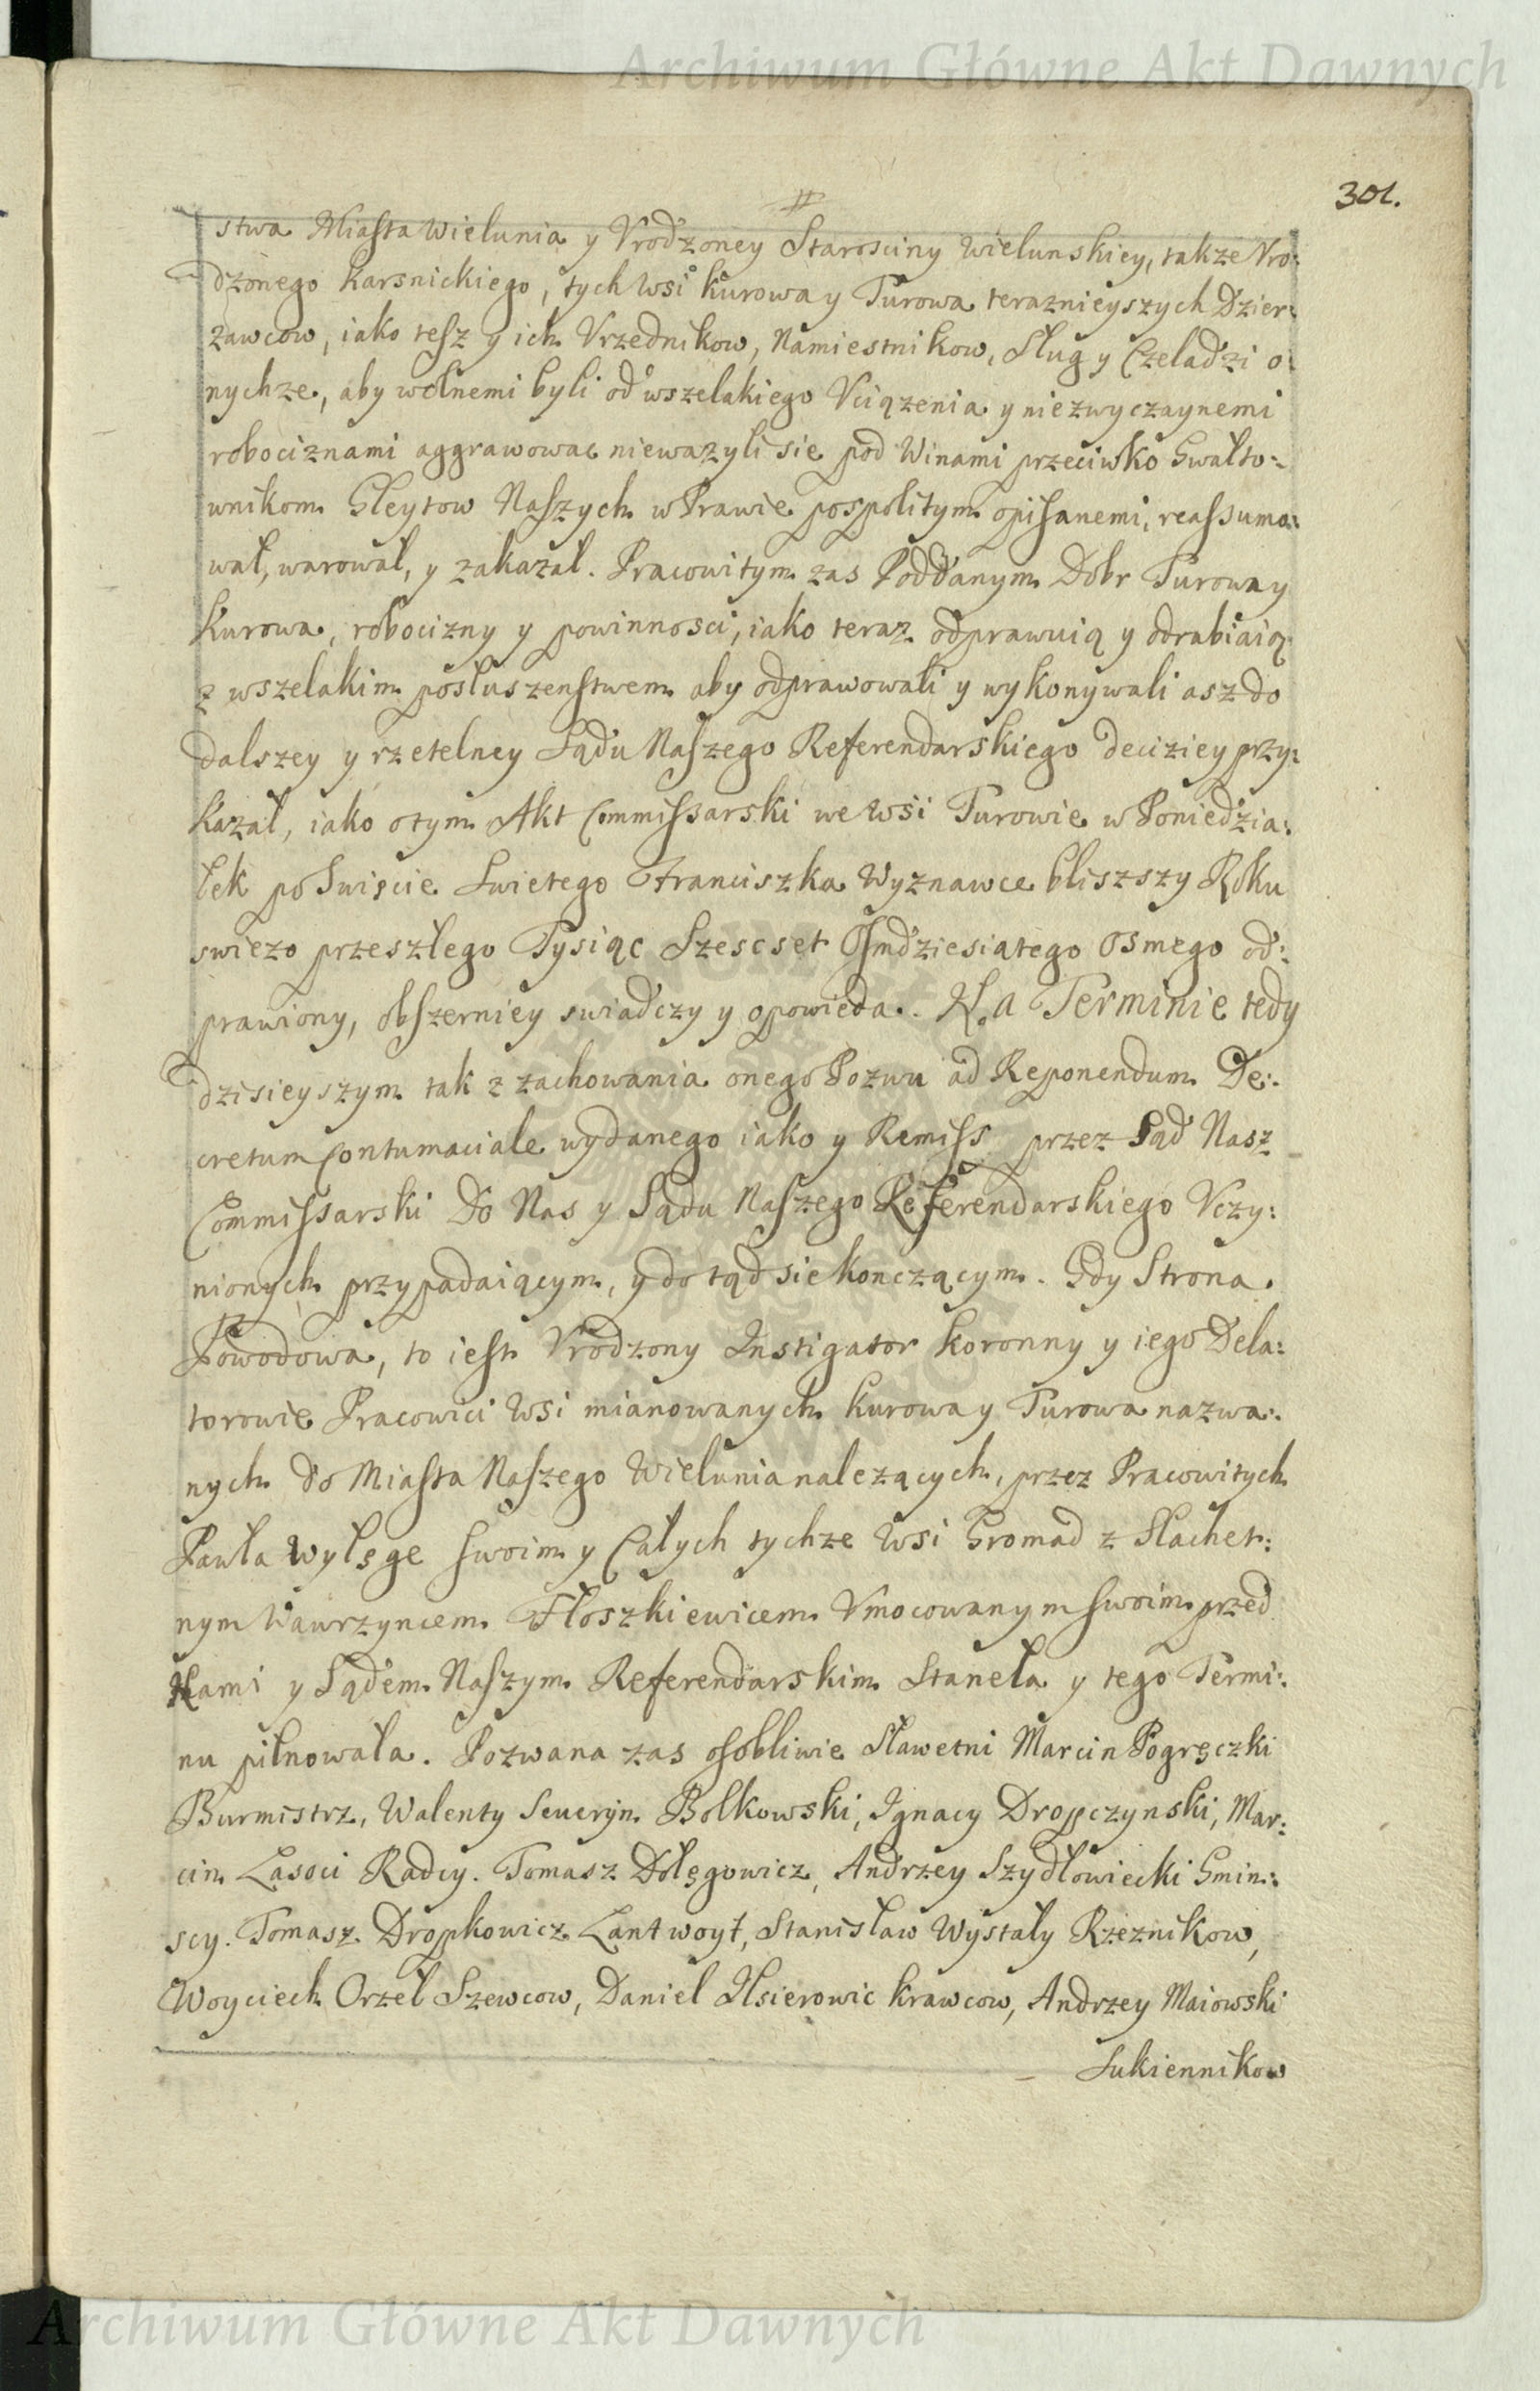 Archiwum Główne Akt Dawnych
301.
stwa Miasta Wielunia y Vrodzoney Starosciny Wielunskiey, takze Vro:
dzonego Karsnickiego, tych Wsi Kurowa y Turowa teraznieyszych Dzier:
zawcow, iako tesz y ich Vrzednikow, Namiestnikow, Sług y Czeladzi o:
nychze, aby wolnemi byli od wszelakiego Vciązenia y niezwyczaynemi
robociznami aggrawowac niewazyli sie pod Winami przeciwko Gwałto:
wnikom Gleytow Naszych w Prawie pospolitym opisanemi, reassumo:
wał, warował, y zakazał. Pracowitym zas Poddanym Dobr Turowa y
Kurowa, robocizny y powinnosci, iako teraz odprawuią y odrabiaią
z wszelakim posłuszenstwem aby odprawowali y wykonywali asz do
dalszey y rzetelney Sądu Naszego Referendarskiego deciziey przy:
kazał, iako o tym Akt Commissarski we Wsi Turowie w Poniedzia:
łek po Swięcie Swietego Franciszka Wyznawce bliszszy Roku
swiezo przeszłego Tysiąc Szescset Osmdziesiątego Osmego od:
prawiony, obszerniey swiadczy y opowieda. Na Terminie tedy
dzisieyszym tak z zachowania onego Pozwu ad Reponendum De:
cretum Contumaciale wydanego iako y Remiss przez Sąd Nasz
Commissarski Do Nas y Sądu Naszego Referendarskiego Vczy:
nionych przypadaiącym, y do tąd sie konczącym. Gdy Strona
Powodowa, to iest Vrodzony Instigator Koronny y iego Dela:
torowie Pracowici Wsi mianowanych Kurowa y Turowa nazwa:
nych do Miasta Naszego Wielunia nalezących, przez Pracowitych
Pawła Wylęge swoim y Całych tychze Wsi Gromad z Slachet:
nym Wawrzyncem Floszkiewicem Vmocowanym swoim przed
Nami y Sądem Naszym Referendarskim Staneła y tego Termi:
nu pilnowała. Pozwana zas osobliwie Sławetni Marcin Pogręczki
Burmistrz, Walenty Seueryn Bolkowski, Ignacy Dropczynski, Mar:
cin Lasoci Radcy. Tomasz Dolęgowicz, Andrzey Szydłowiecki Gmin:
scy. Tomasz Dropkowicz Lantwoyt, Stanisław Wystały Rzeznikow,
Woyciech Orzeł Szewcow, Daniel Ilsierowic Krawcow, Andrzey Maiowski
Sukiennikow
Archiwum Główne Akt Dawnych